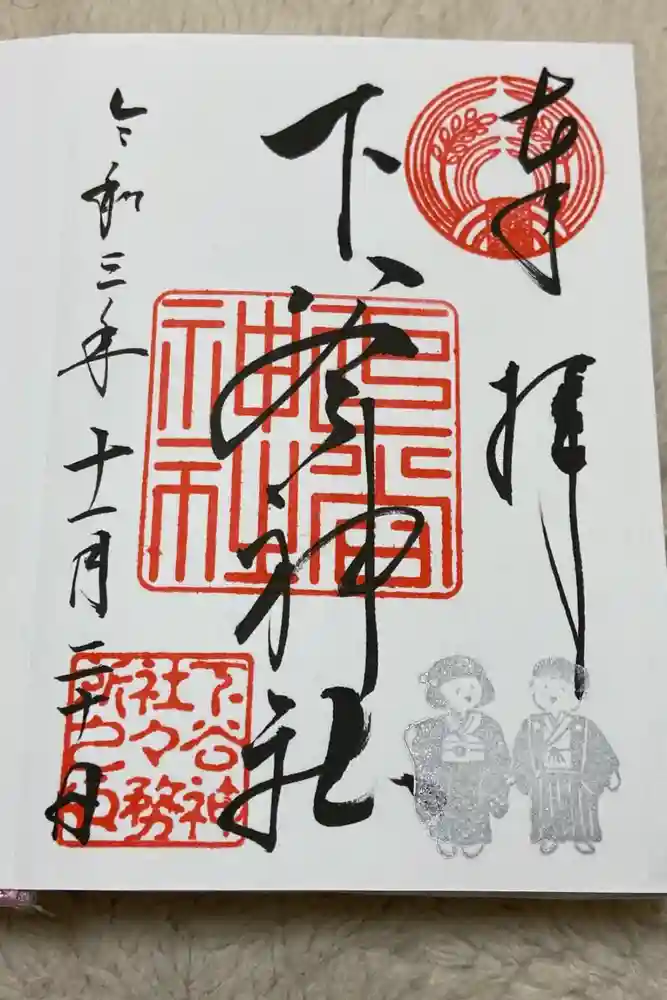 奉拝
下谷神社
下谷神社
下谷神
社々務
所之印
令和三年十一月二十日